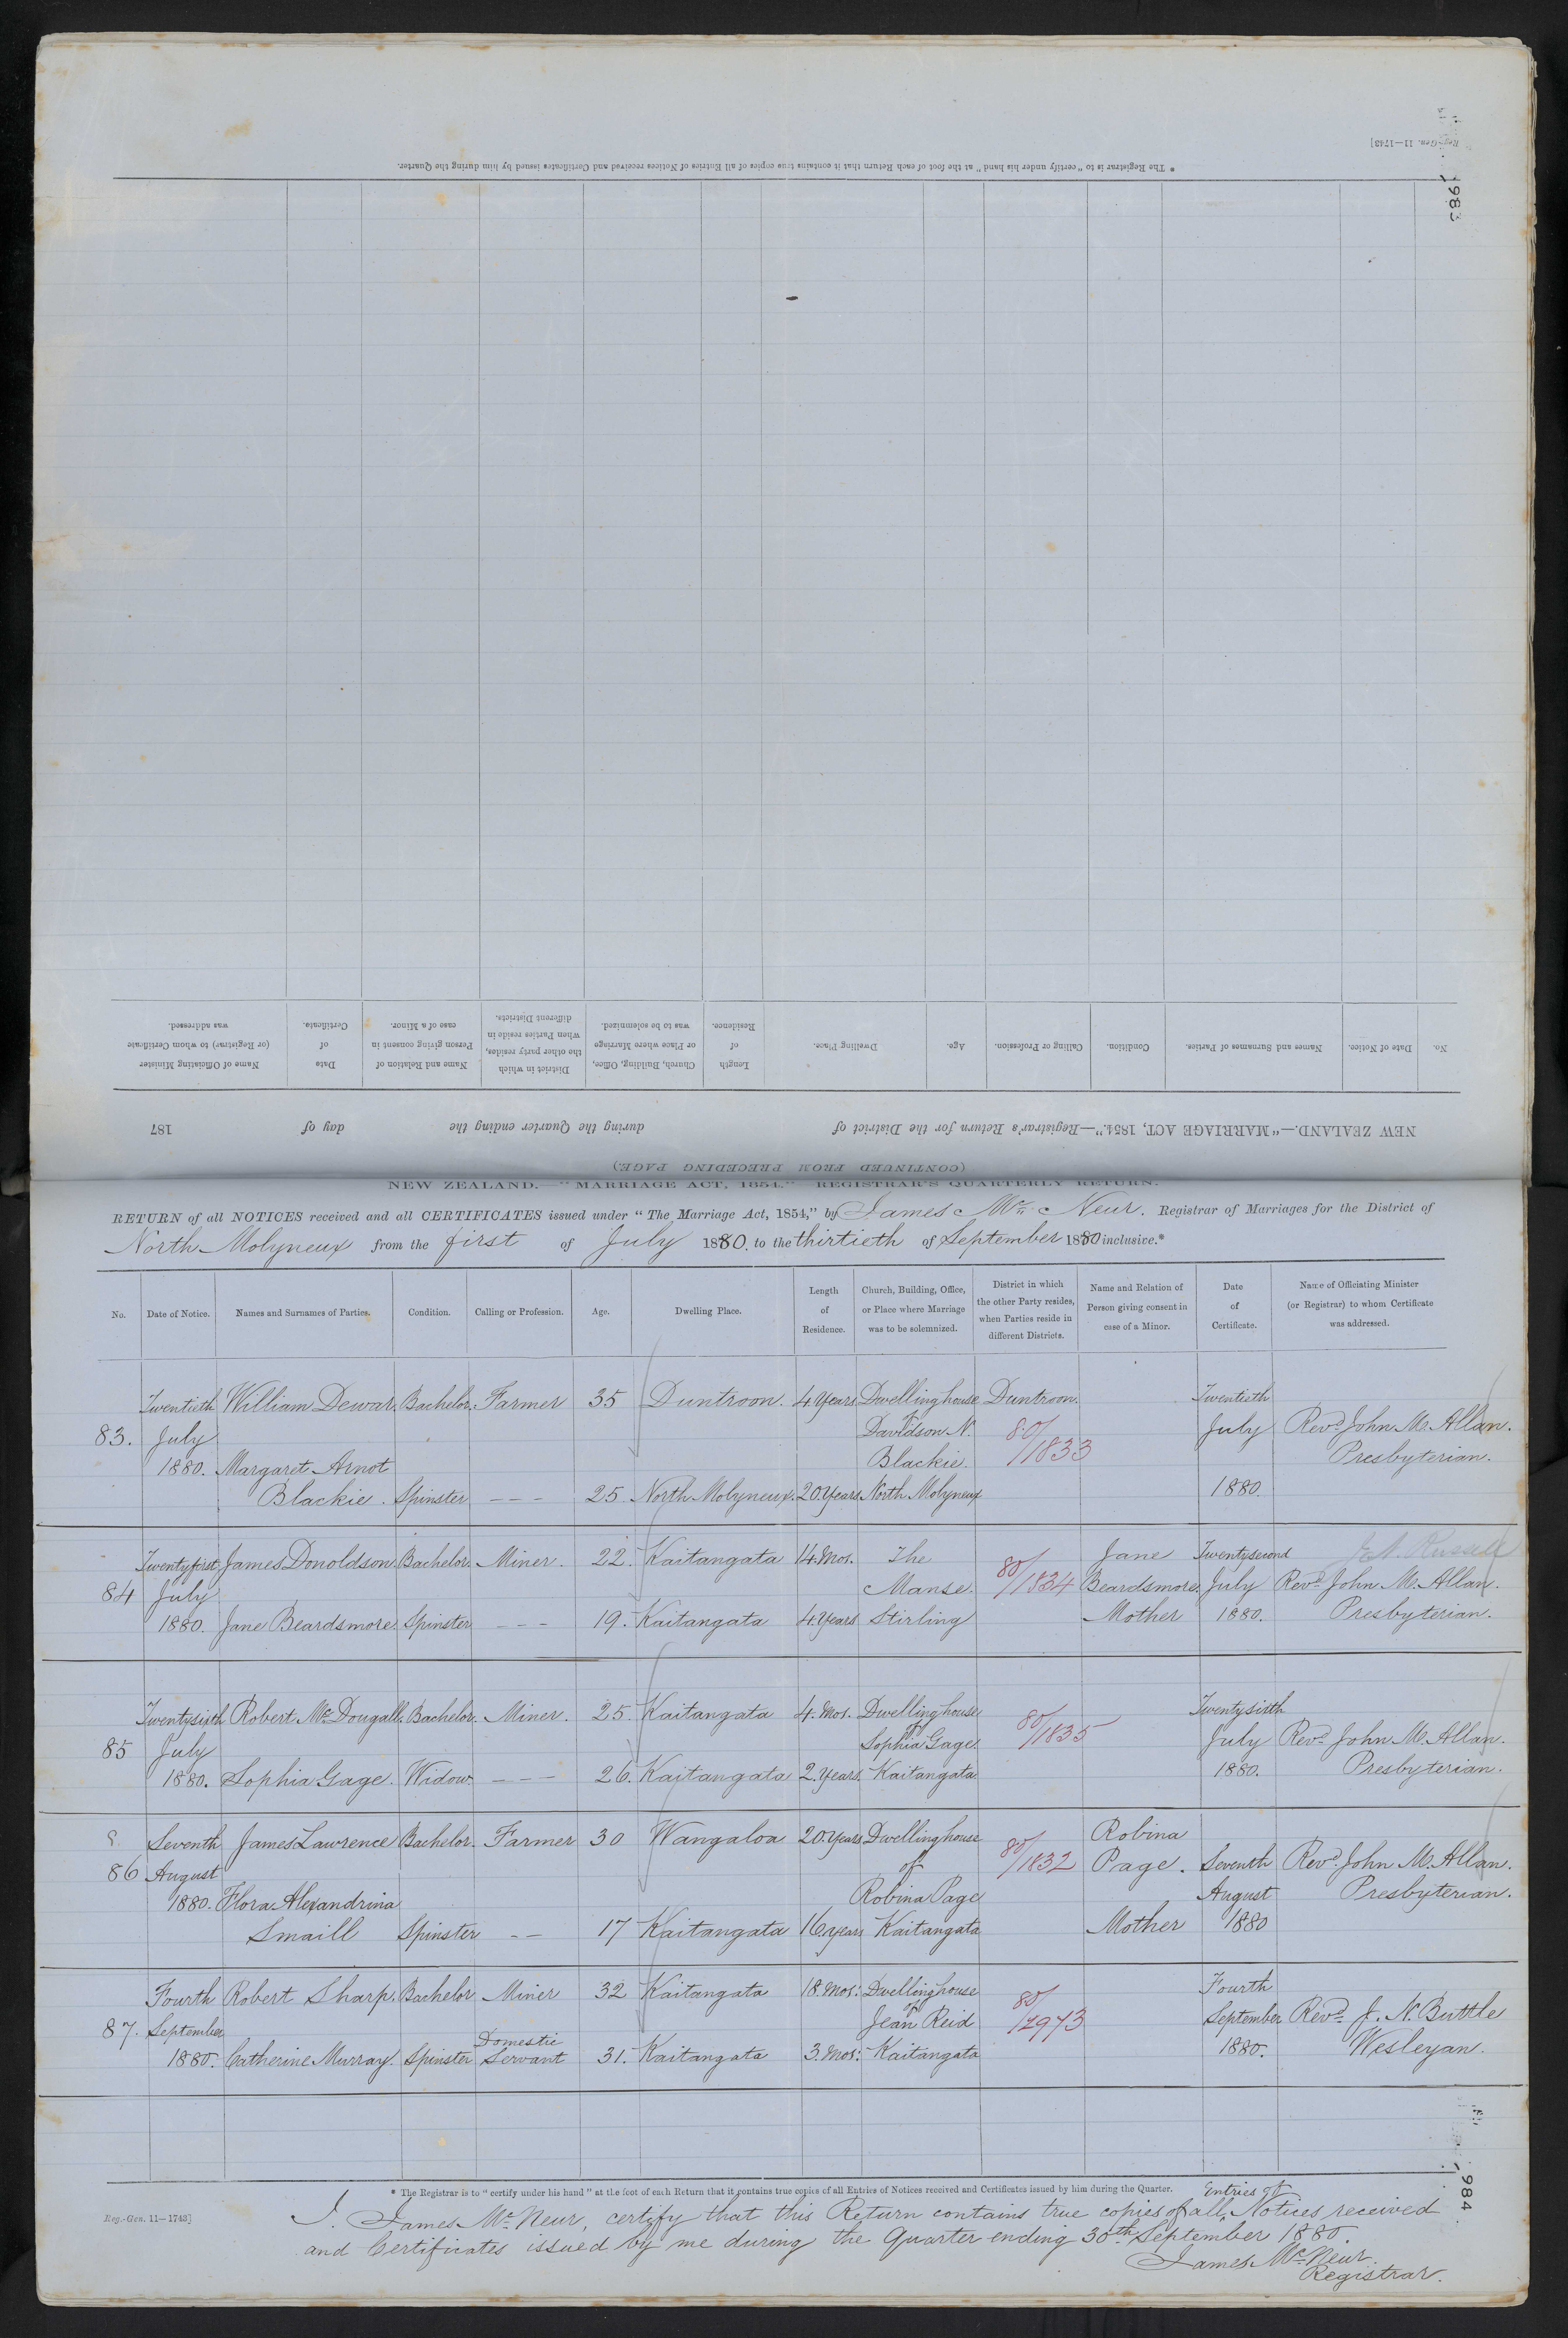 Reg.-Gen. 11—1743]
983
* The Registrar is to "certify under his hand" at the foot of each Return that it contains true copies of all Entries of Notices received and Certificates issued by him during the Quarter.
No. Date of Notice. Names and Surnames of Parties. Condition. Calling or Profession. Age. Dwelling Place. Length of Residence. Church, Building, Office, or Place where Marriage was to be solemnized. District in which the other party resides, when Parties reside in different Districts. Name and Relation of Person giving consent in case of a Minor. Date of Certificate. Name of Officiating Minister (or Registrar) to whom Certificate was addressed.
NEW ZEALAND.—"MARRIAGE ACT, 1854."—Registrar's Return for the District of during the Quarter ending the day of 187
(CONTINUED FROM PRECEDING PAGE)
NEW ZEALAND.—"MARRIAGE ACT, 1854." REGISTRAR'S QUARTERLY RETURN.
RETURN of all NOTICES received and all CERTIFICATES issued under "The Marriage Act, 1854," by James Mc Neur. Registrar of Marriages for the District of
North Molyneux from the first of July 1880. to the thirtieth of September 1880 inclusive.*
No. Date of Notice. Names and Surnames of Parties. Condition. Calling or Profession. Age. Dwelling Place. Length of Residence. Church, Building, Office, or Place where Marriage was to be solemnized. District in which the other Party resides, when Parties reside in different Districts. Name and Relation of Person giving consent in case of a Minor. Date of Certificate. Name of Officiating Minister (or Registrar) to whom Certificate was addressed.
Twentieth William Dewar. Bachelor. Farmer 35 Duntroon. 4 Years Dwellinghouse Duntroon. Twentieth
83. July of Davidson N. 80/1833 July Revd. John M. Allan.
1880. Margaret Arnot Blackie. Presbyterian.
Blackie. Spinster --- 25 North Molyneux. 20 Years. North Molyneux 1880.
Twentyfirst James Donoldson. Bachelor. Miner. 22. Kaitangata 14. Mos. The Jane Twentysecond J. A. Russell
84 July Manse. 80/1834 Beardsmore. July Revd. John M. Allan.
1880. Jane Beardsmore. Spinster --- 19. Kaitangata 4 Years Stirling Mother 1880. Presbyterian.
Twentysixth Robert McDougall. Bachelor. Miner. 25. Kaitangata 4. Mos. Dwellinghouse Twentysixth
85 July of Sophia Gage. 80/1835 July Revd. John M. Allan.
1880. Sophia Gage. Widow. --- 26. Kaitangata 2. Years. Kaitangata 1880. Presbyterian.
Seventh James Lawrence Bachelor. Farmer 30 Wangaloa 20. Years Dwellinghouse Robina
86 August of 80/1832 Page. Seventh Revd. John M. Allan.
1880. Flora Alexandrina Robina Page August Presbyterian.
Smaill Spinster -- 17 Kaitangata 16. years Kaitangata Mother 1880
Fourth Robert Sharp. Bachelor Miner 32 Kaitangata 18. Mos: Dwellinghouse Fourth
87. September of Jean Reid 80/2973 September Revd. J. N. Buttle
1880. Catherine Murray. Spinster Domestic Servant 31. Kaitangata 3. Mos: Kaitangata 1880. Wesleyan.
984
* The Registrar is to "certify under his hand" at the foot of each Return that it contains true copies of all Entries of Notices received and Certificates issued by him during the Quarter.
Reg.-Gen. 11—1743]
I. James McNeur, certify that this Return contains true copies of all Entries of Notices received
and Certificates issued by me during the Quarter ending 30th September 1880.
James McNeur.
Registrar.